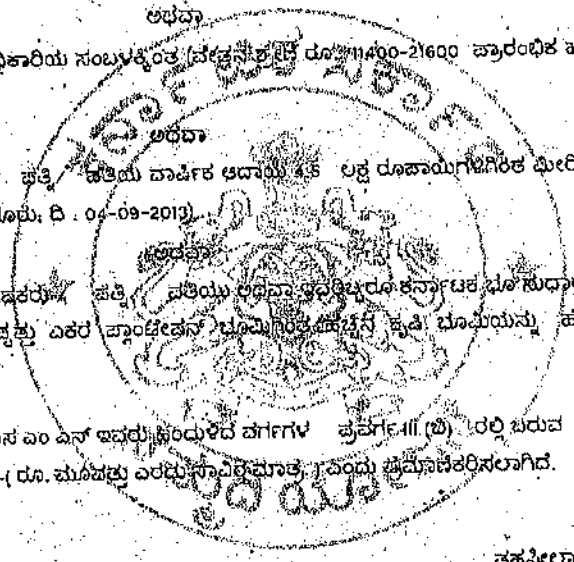 ಅಥವಾ
ಧಿಕಾರಿಯ ಸಂಬಳಕ್ಕಿಂತ (ವೇತನ ಶ್ರೇಣಿ ರೂ. 11400-21600 ಪ್ರಾರಂಭಿಕ
ಅಥವಾ
ಪತ್ನಿ ಪತಿಯ ವಾರ್ಷಿಕ ಆದಾಯ ಲಕ್ಷ ರೂಪಾಯಿಗಳಿಗಿಂತ ಮೀರಿ
ದಿ : 04-09-2013)
ಅಥವಾ
ಪತ್ನಿ / ಪತಿಯು ಅಥವಾ ಇವರಿಬ್ಬರೂ ಕರ್ನಾಟಕ ಭೂ ಸುಧಾರ
ಎಕರೆ ಪ್ಲಾಂಟೇಷನ್ ಭೂಮಿಗಿಂತ ಹೆಚ್ಚಿನ ಕೃಷಿ ಭೂಮಿಯನ್ನು
ಎಂ ಎನ್ ಇವರು ಹಿಂದುಳಿದ ವರ್ಗಗಳ ಪ್ರವರ್ಗ III (ಬಿ) ರಲ್ಲಿ ಬರುವ
-( ರೂ. ಮೂವತ್ತು ಎರಡು ಸಾವಿರ ಮಾತ್ರ ) ಎಂದು ಪ್ರಮಾಣೀಕರಿಸಲಾಗಿದೆ.
ತಹಶೀಲ್ದಾ
ಕರ್ನಾಟಕ ಸರ್ಕಾರ